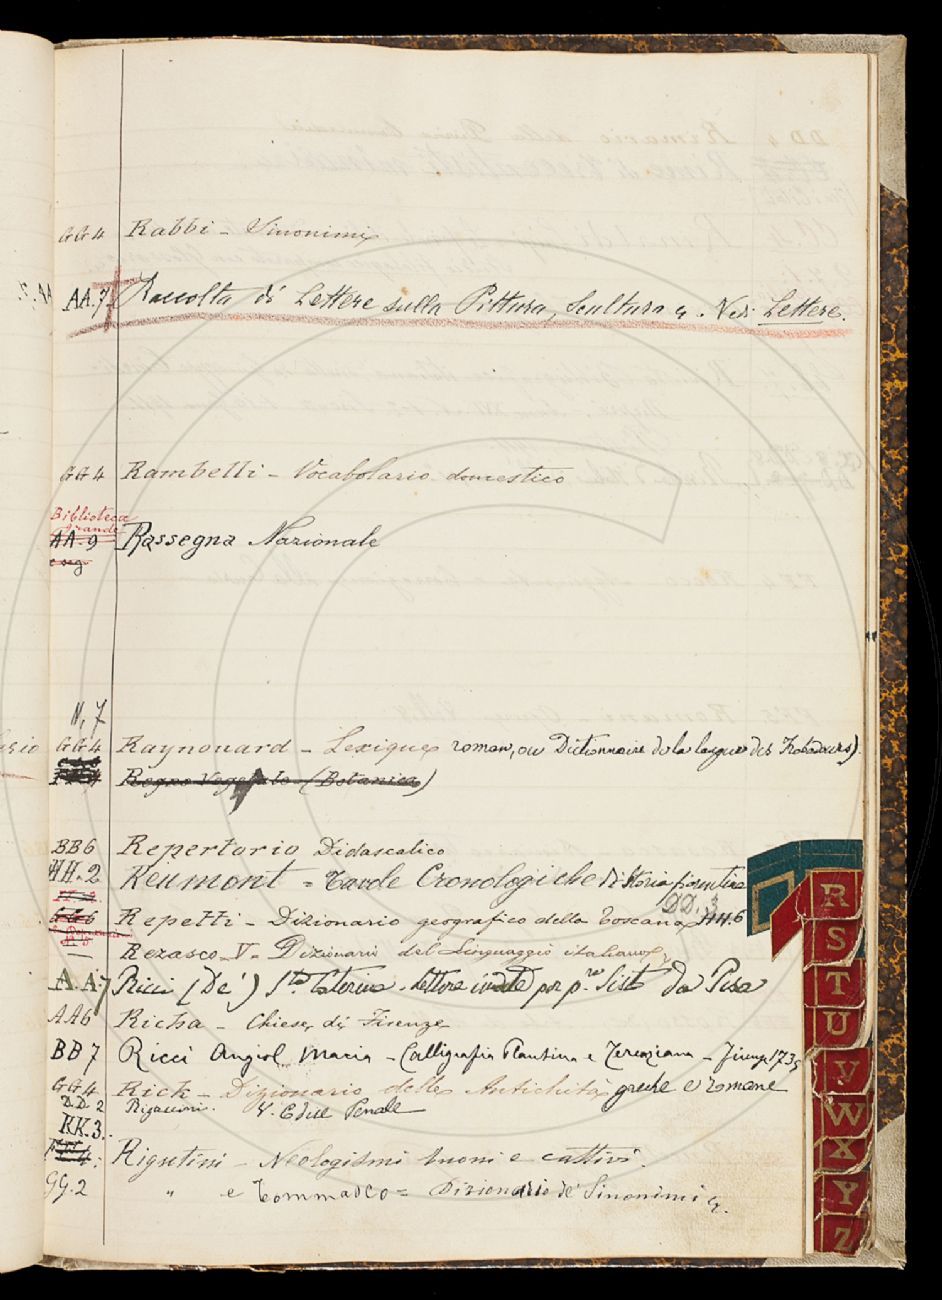 GG4 Rabbi - Sinonimi
AA.7 Raccolta di Lettere sulla Pittura, Scultura . Vedi Lettere.
GG4 Rambelli - Vocabolario domestico
Biblioteca
grande
AA.9 Rassegna Nazionale
e seg
N, 7
GG4 Raynouard - Lexique roman, ou Dictionnaire de la langue des Trobadours).
Regno Vegetale (Botanica)
BB6 Repertorio Didascalico
HH.2 Reumont = Tavole Cronologiche di Storia fiorentina
DD.3
Repetti - Dizionario geografico della Toscana HH.6
— Rezasco V. Dizionario del Linguaggio italiano
A.A.7 Ricci (De') S.ta Caterina. Lettere inedite per p. Sisto da Pisa
AA6 Richa - Chiese di Firenze
BB7 Ricci Angiol Maria - Calligrafia Plautina e Terenziana - Firenze 1739
GG4 Rich - Dizionario delle Antichità greche e romane
DD2 V. Edue Penale
KK.3.
Rigutini - Neologismi buoni e cattivi.
GG.2 " e Tommaseo = Dizionario de' Sinonimi
R
S
T
U
V
W
X
Y
Z